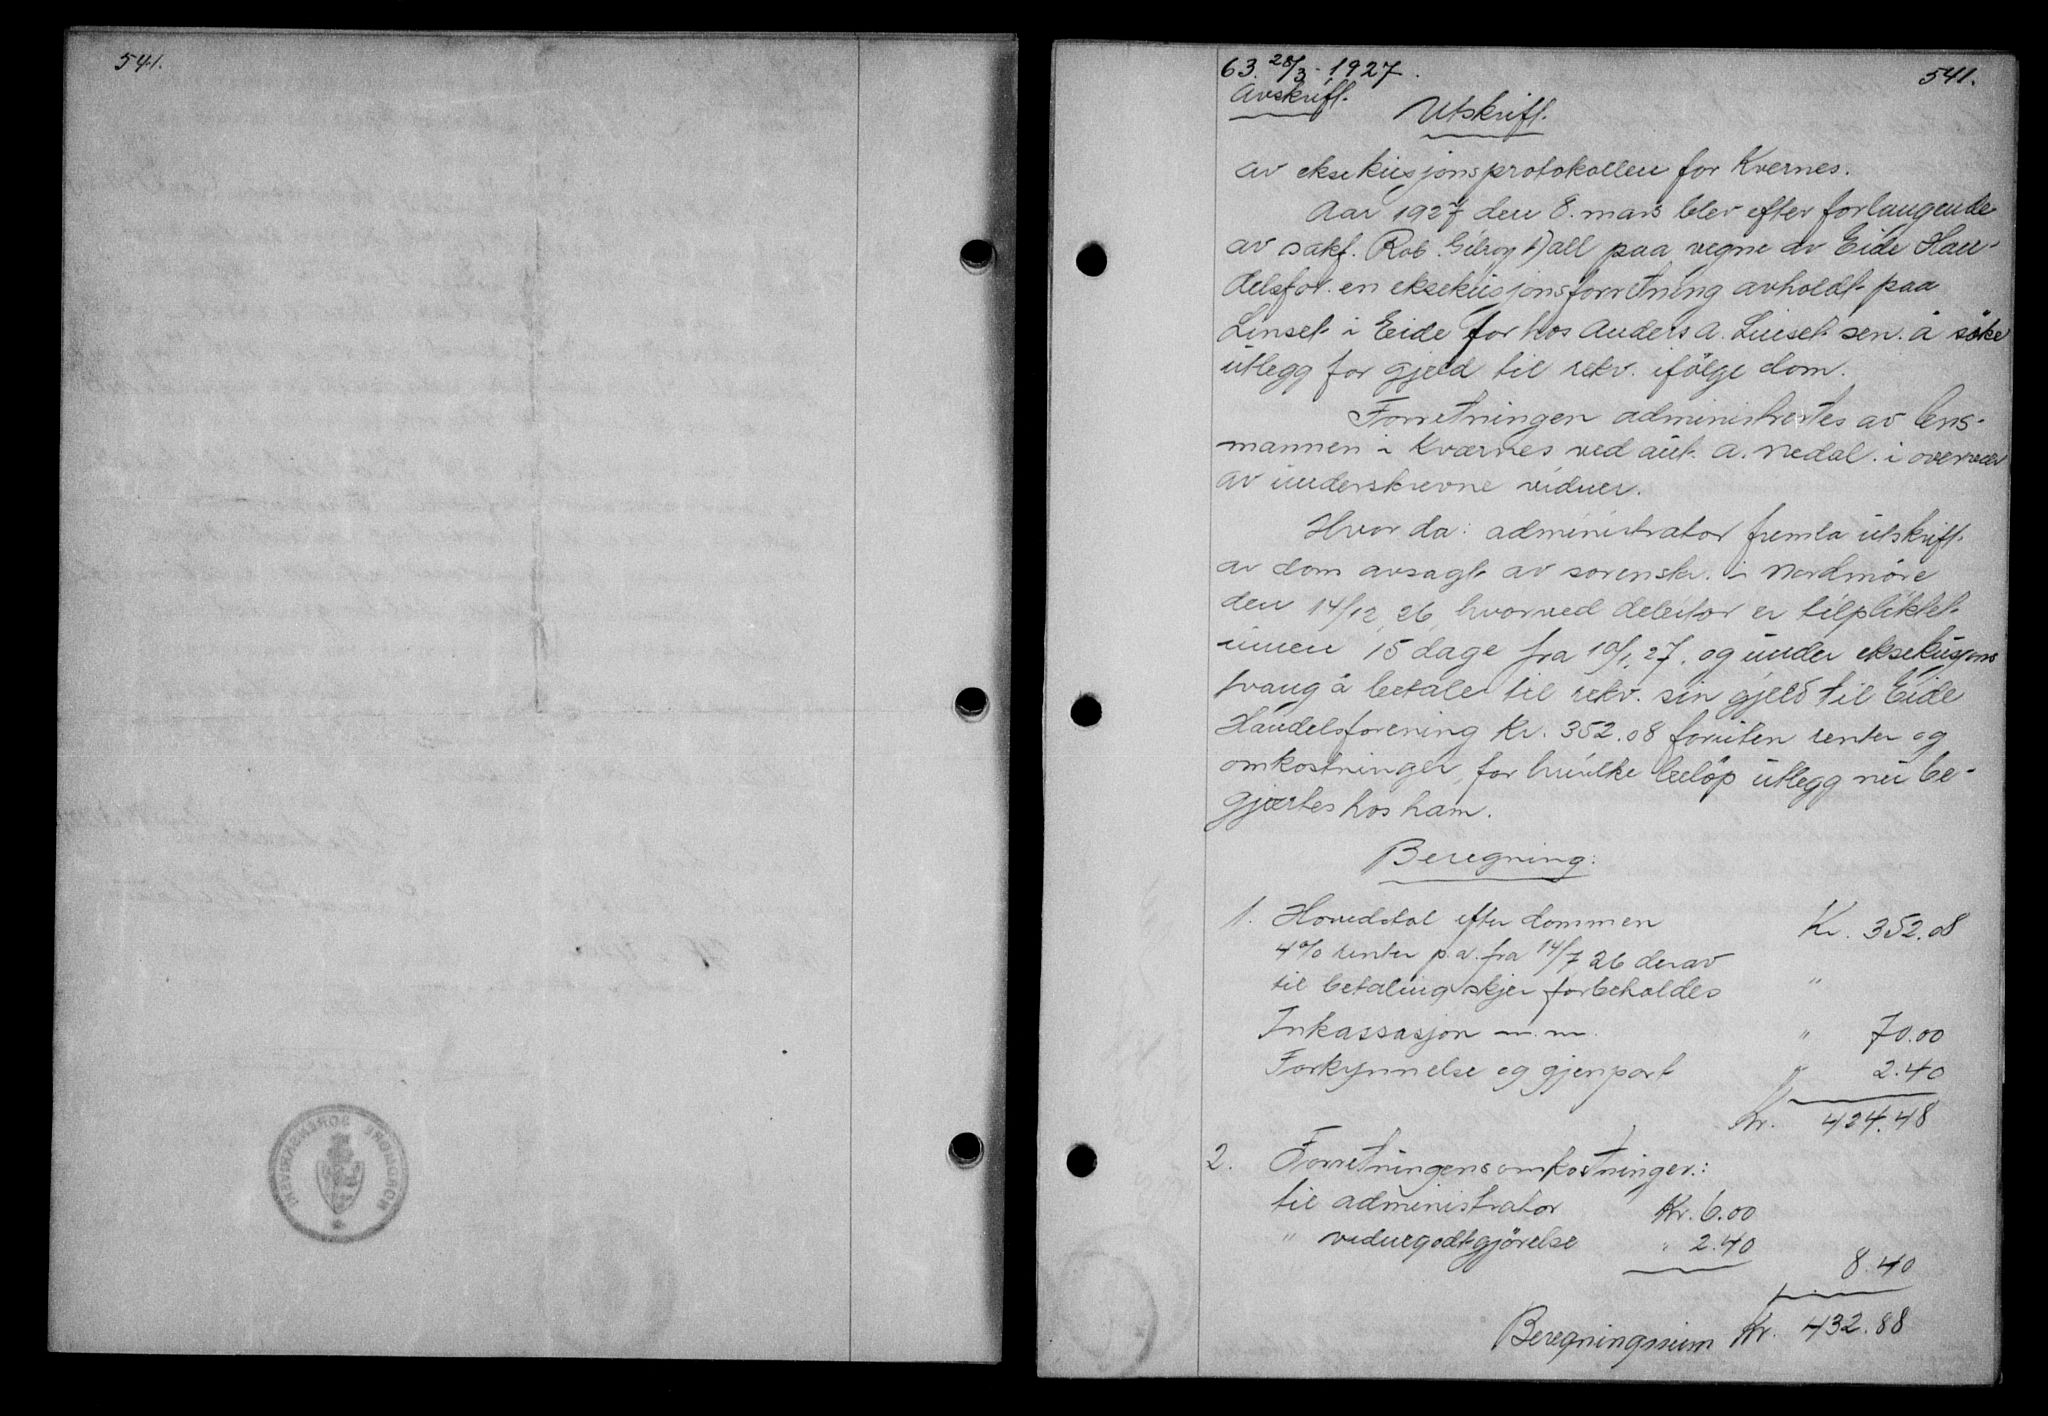 541.
NORDMØRE SORENSKRIVERI
63. 28/3 - 1927.
541.
Avskrift.
Utskrift.
av eksekusjonsprotokollen for Kvernes.
Aar 1927 den 8. mars blev efter forlangende
av sakf. Rob. Gilroy Dall paa vegne av Eide Han-
delsfor. en eksekusjonsforretning avholdt paa
Linset i Eide for hos Anders A. Linset sen. å söke
utlegg for gjeld til rekv. ifölge dom.
Forretningen administrertes av lens-
mannen i Kværnes ved aut. A. Nedal. i overvær
av underskrevne vidner.
Hvor da: administrator fremla utskrift
av dom avsagt av sorenskr. i Nordmöre
den 14/12 26 hvorved debitor er tilpliktet
innen 15 dage fra 10/1. 27. og under eksekusjons
tvang å betale til rekv. sin gjeld til Eide
Handelsforening Kr. 352.08 foruten renter og
omkostninger, for hvilke belöp utlegg nu be-
gjærtes hos ham.
Beregning:
1. Hovedstol efter dommen Kr. 352.08
4% renter p.a. fra 14/7 26 derav
til betaling skjer forbeholdes "
Inkassasjon m.m. " 70.00
Forkynnelse og gjenpart " 2.40
Kr. 424.48
2. Forretningens omkostninger:
til administrator Kr. 6.00
" vidnegodtgjörelse " 2.40
8.40
Beregningssum Kr. 432.88